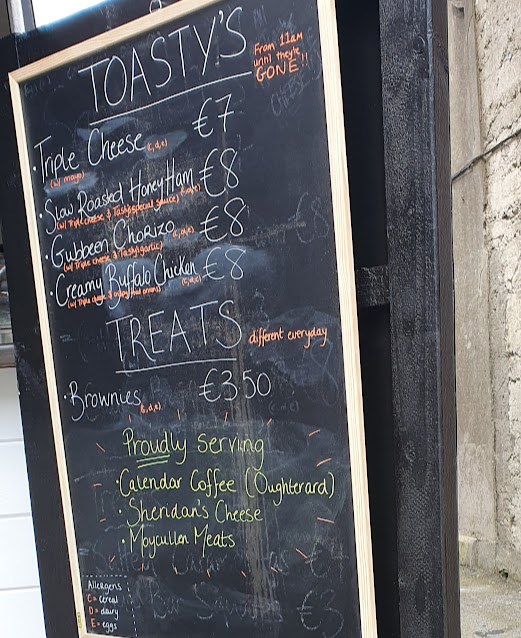 TOASTY'S
From 11am
until they're
GONE!!
• Triple Cheese (c,d,e) €7
(w/ mayo)
• Slow Roasted Honey Ham €8
(w/ Triple cheese & Tasty special sauce) (c,d,e)
• Gubbeen Chorizo (c,d,e) €8
(w/ Triple cheese & Tasty garlic)
• Creamy Buffalo Chicken (c,d,e) €8
(w/ Triple cheese & onions)
TREATS different everyday
• Brownies (c,d,e) €3.50
Proudly serving
• Calendar Coffee (Oughterard)
• Sheridan's Cheese
• Moycullen Meats
Allergens
C = cereal
D = dairy
E = eggs